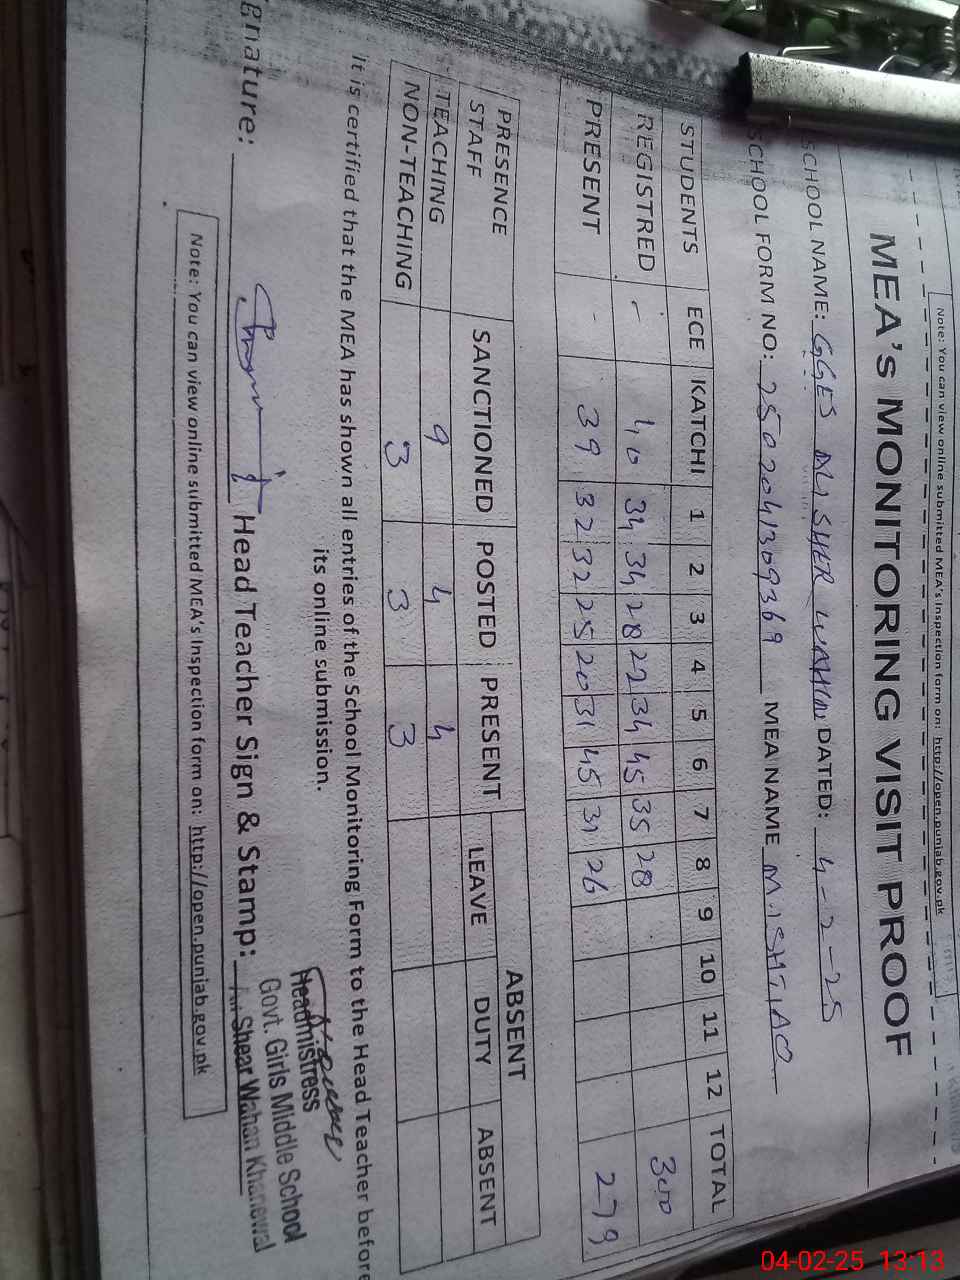 Note: You can view online submitted MEA's Inspection form on: http://open.punjab.gov.pk
MEA's MONITORING VISIT PROOF
SCHOOL NAME: GGES ALI SHER WAHAN DATED: 4-2-25
SCHOOL FORM NO: 2502041309369 MEA NAME M. ISHTIAQ
STUDENTS ECE KATCHI 1 2 3 4 5 6 7 8 9 10 11 12 TOTAL
REGISTRED - 40 34 34 28 22 34 45 35 28 300
PRESENT - 39 32 32 25 20 31 45 31 26 279
PRESENCE STAFF SANCTIONED POSTED PRESENT ABSENT
LEAVE DUTY ABSENT
TEACHING 9 4 4
NON-TEACHING 3 3 3
It is certified that the MEA has shown all entries of the School Monitoring Form to the Head Teacher before
its online submission.
gnature: Head Teacher Sign & Stamp:
Headmistress
Govt. Girls Middle School
Ali Shear Wahan Khanewal
Note: You can view online submitted MEA's Inspection form on: http://open.punjab.gov.pk
04-02-25 13:13